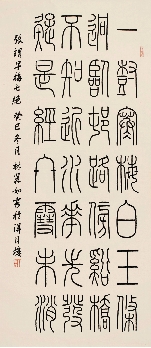 一樹寒梅白玉條
迥臨邨路傍谿橋
不知近水花先發
疑是經冬雪未消
張謂早梅七絕 癸巳冬月